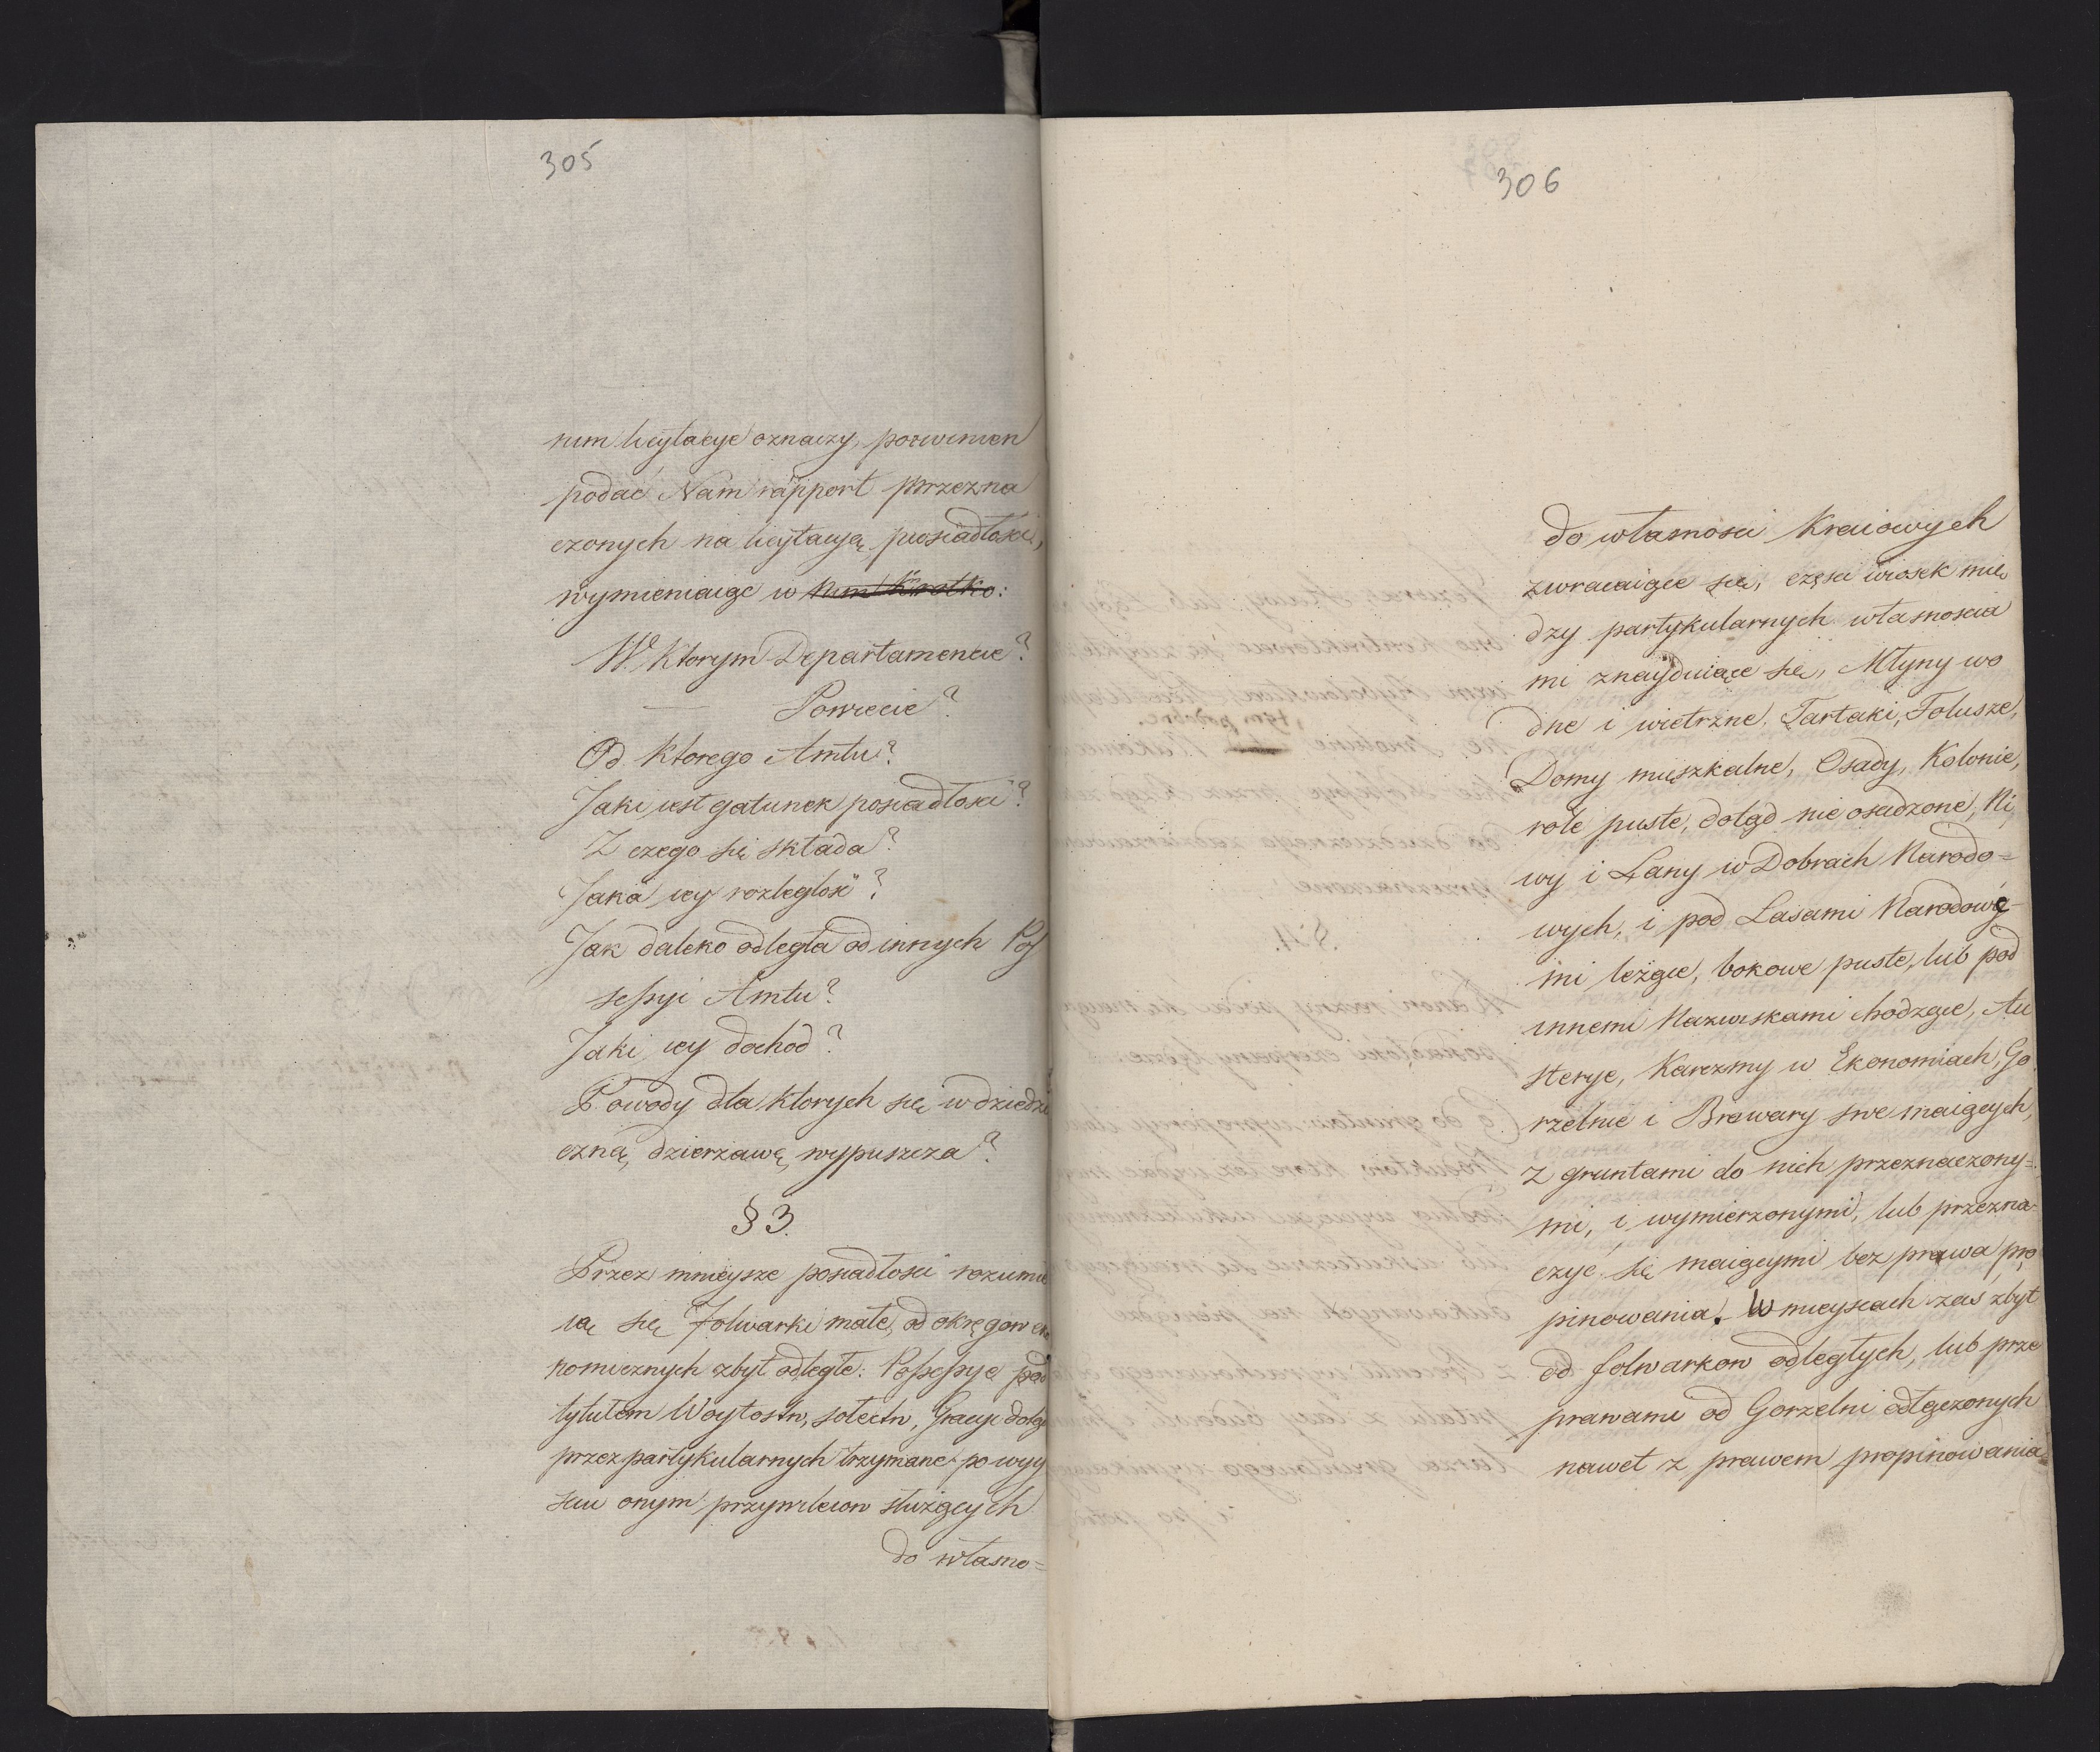 305
nim licytacye oznaczy, powinien
podać Nam rapport przezna
czonych na licytacyą posiadłości,
wymieniaiąc w nim krotko:
W ktorym Departamencie?
— Powiecie?
Od ktorego Amtu?
Jaki iest gatunek posiadłosci?
Z czego się składa?
Jaka iey rozległość?
Jak daleko odległa od innych Pos
sessyi Amtu?
Jaki iey dochod?
Powody dla ktorych się w dziedzi
czną dzierzawę wypuszcza?
§ 3.
Przez mnieysze posiadłosci rozumie
ią się folwarki małe, od okręgow eko
nomicznych zbyt odległe: Possessye pod
tytułem Woytostw, sołectw, Gracye dotąd
przez partykularnych trzymane po wyy
sciu onym przywileiow służących
do własno=
306
do własnosci Kraiowych
zwracaiące się, częsci wiosek mię
dzy partykularnych własnoscia
mi znayduiące się, Młyny wo
dne i wietrzne, Tartaki, Folusze,
Domy mięszkalne, Osady, Kolonie,
role puste, dotąd nie osadzone, Ni,
wy i Łany w Dobrach Narodo=
wych, i pod Lasami Narodowe-
mi leżące, bokowe puste, lub pod
innemi Nazwiskami chodzące, Au
sterye, Karczmy w Ekonomiach, Go
rzelnie i Browary swe maiących,
z gruntami do nich przeznaczony=
mi, i wymierzonymi, lub przezna
czyć się maiącymi bez prawa pro
pinowania. W mieyscach zas zbyt
od folwarkow odległych, lub prze
prawami od Gorzelni odłączonych
nawet z prawem propinowania